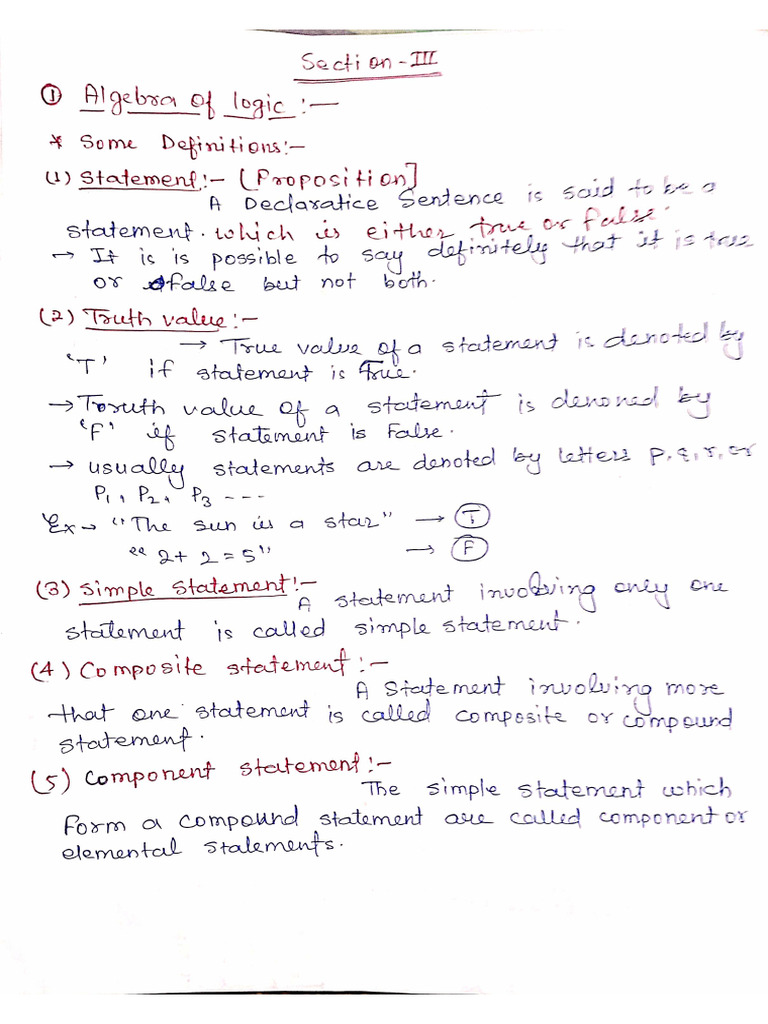 Section-III
① Algebra of logic :—
* Some Definitions:-
(1) Statement:- [Proposition]
A Declaratice Sentence is said to be a
statement. which is either true or false.
→ It is is possible to say definitely that it is true
or false but not both.
(2) Truth value:-
→ True value of a statement is denoted by
'T' if statement is True.
→ Toruth value of a statement is denoned by
'F' if statement is False.
→ usually statements are denoted by letters p, q, r, or
P₁, P₂, P₃ ---
Ex → "The sun is a star" → Ⓣ
"2+2=5" → Ⓕ
(3) Simple Statement:-
A statement involving only one
statement is called simple statement.
(4) Composite statement:-
A Statement involving more
that one statement is called composite or compound
statement.
(5) Component statement:-
The simple statement which
form a compound statement are called component or
elemental statements.